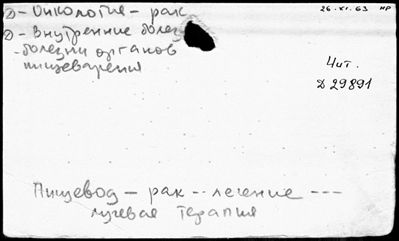 D - Онкология - рак
26.XI.63 НР
D - Внутренние болез
- болезни органов
пищеварения
Чит.
D 29891
Пищевод - рак -- лечение ---
лучевая терапия